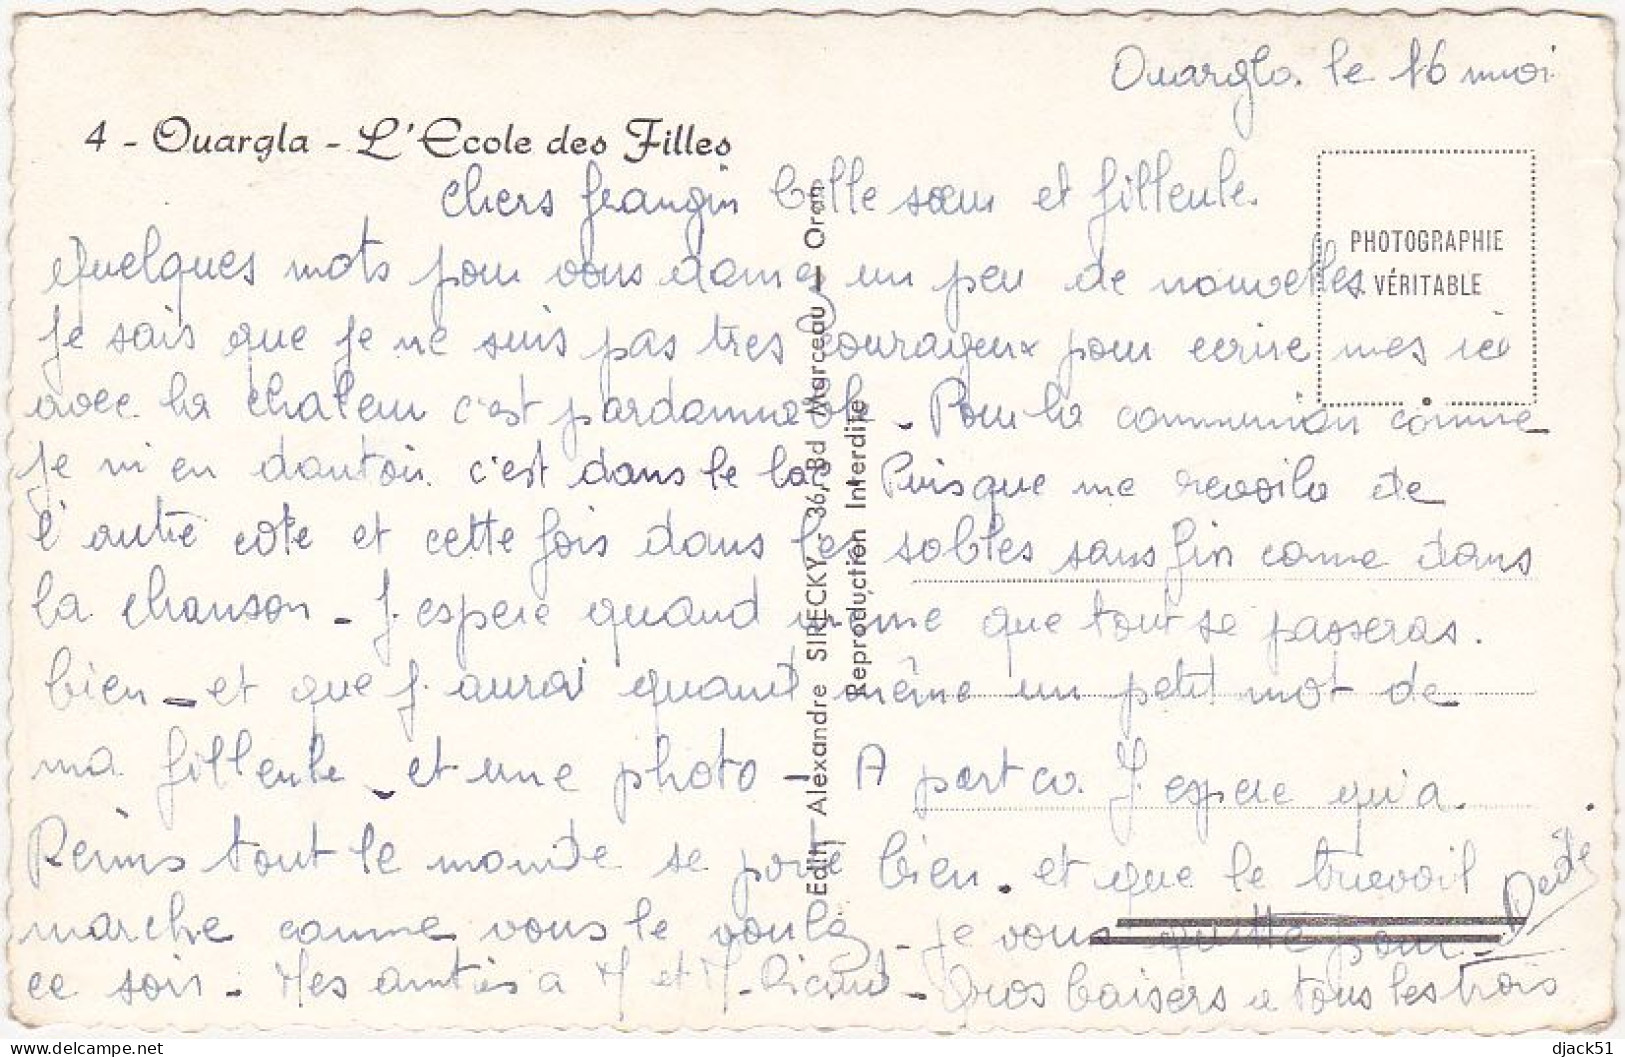 Ouargla. le 16 mai
4 - Ouargla - L'Ecole des Filles
Chers frangin belle sœur et filleule.
PHOTOGRAPHIE
VÉRITABLE
Quelques mots pour vous donnez un peu de nouvelles.
Je sais que je ne suis pas tres courageux pour ecrire mes ici
avec la chaleur c'est pardonnable - Pour la communion comme
je m'en doutais c'est dans le lac Puisque me revoila de
l'autre coté et cette fois dans les sables sans fin comme dans
la chanson - J'espere quand même que tout se passeras.
bien - et que j'aurai quand même un petit mot de
ma filleule - et une photo - A part ca J'espere qu'a.
Reims tout le monde se porte bien. et que le travail
marche comme vous le voulez - je vous quitte pour
ce soir - Mes amitiés a M et M - Ricard - Gros baisers a tous les trois
Dédé
Edit. Alexandre SIRECKY - 36, Bd Marceau - Oran
Reproduction Interdite
delcampe.net
djack51